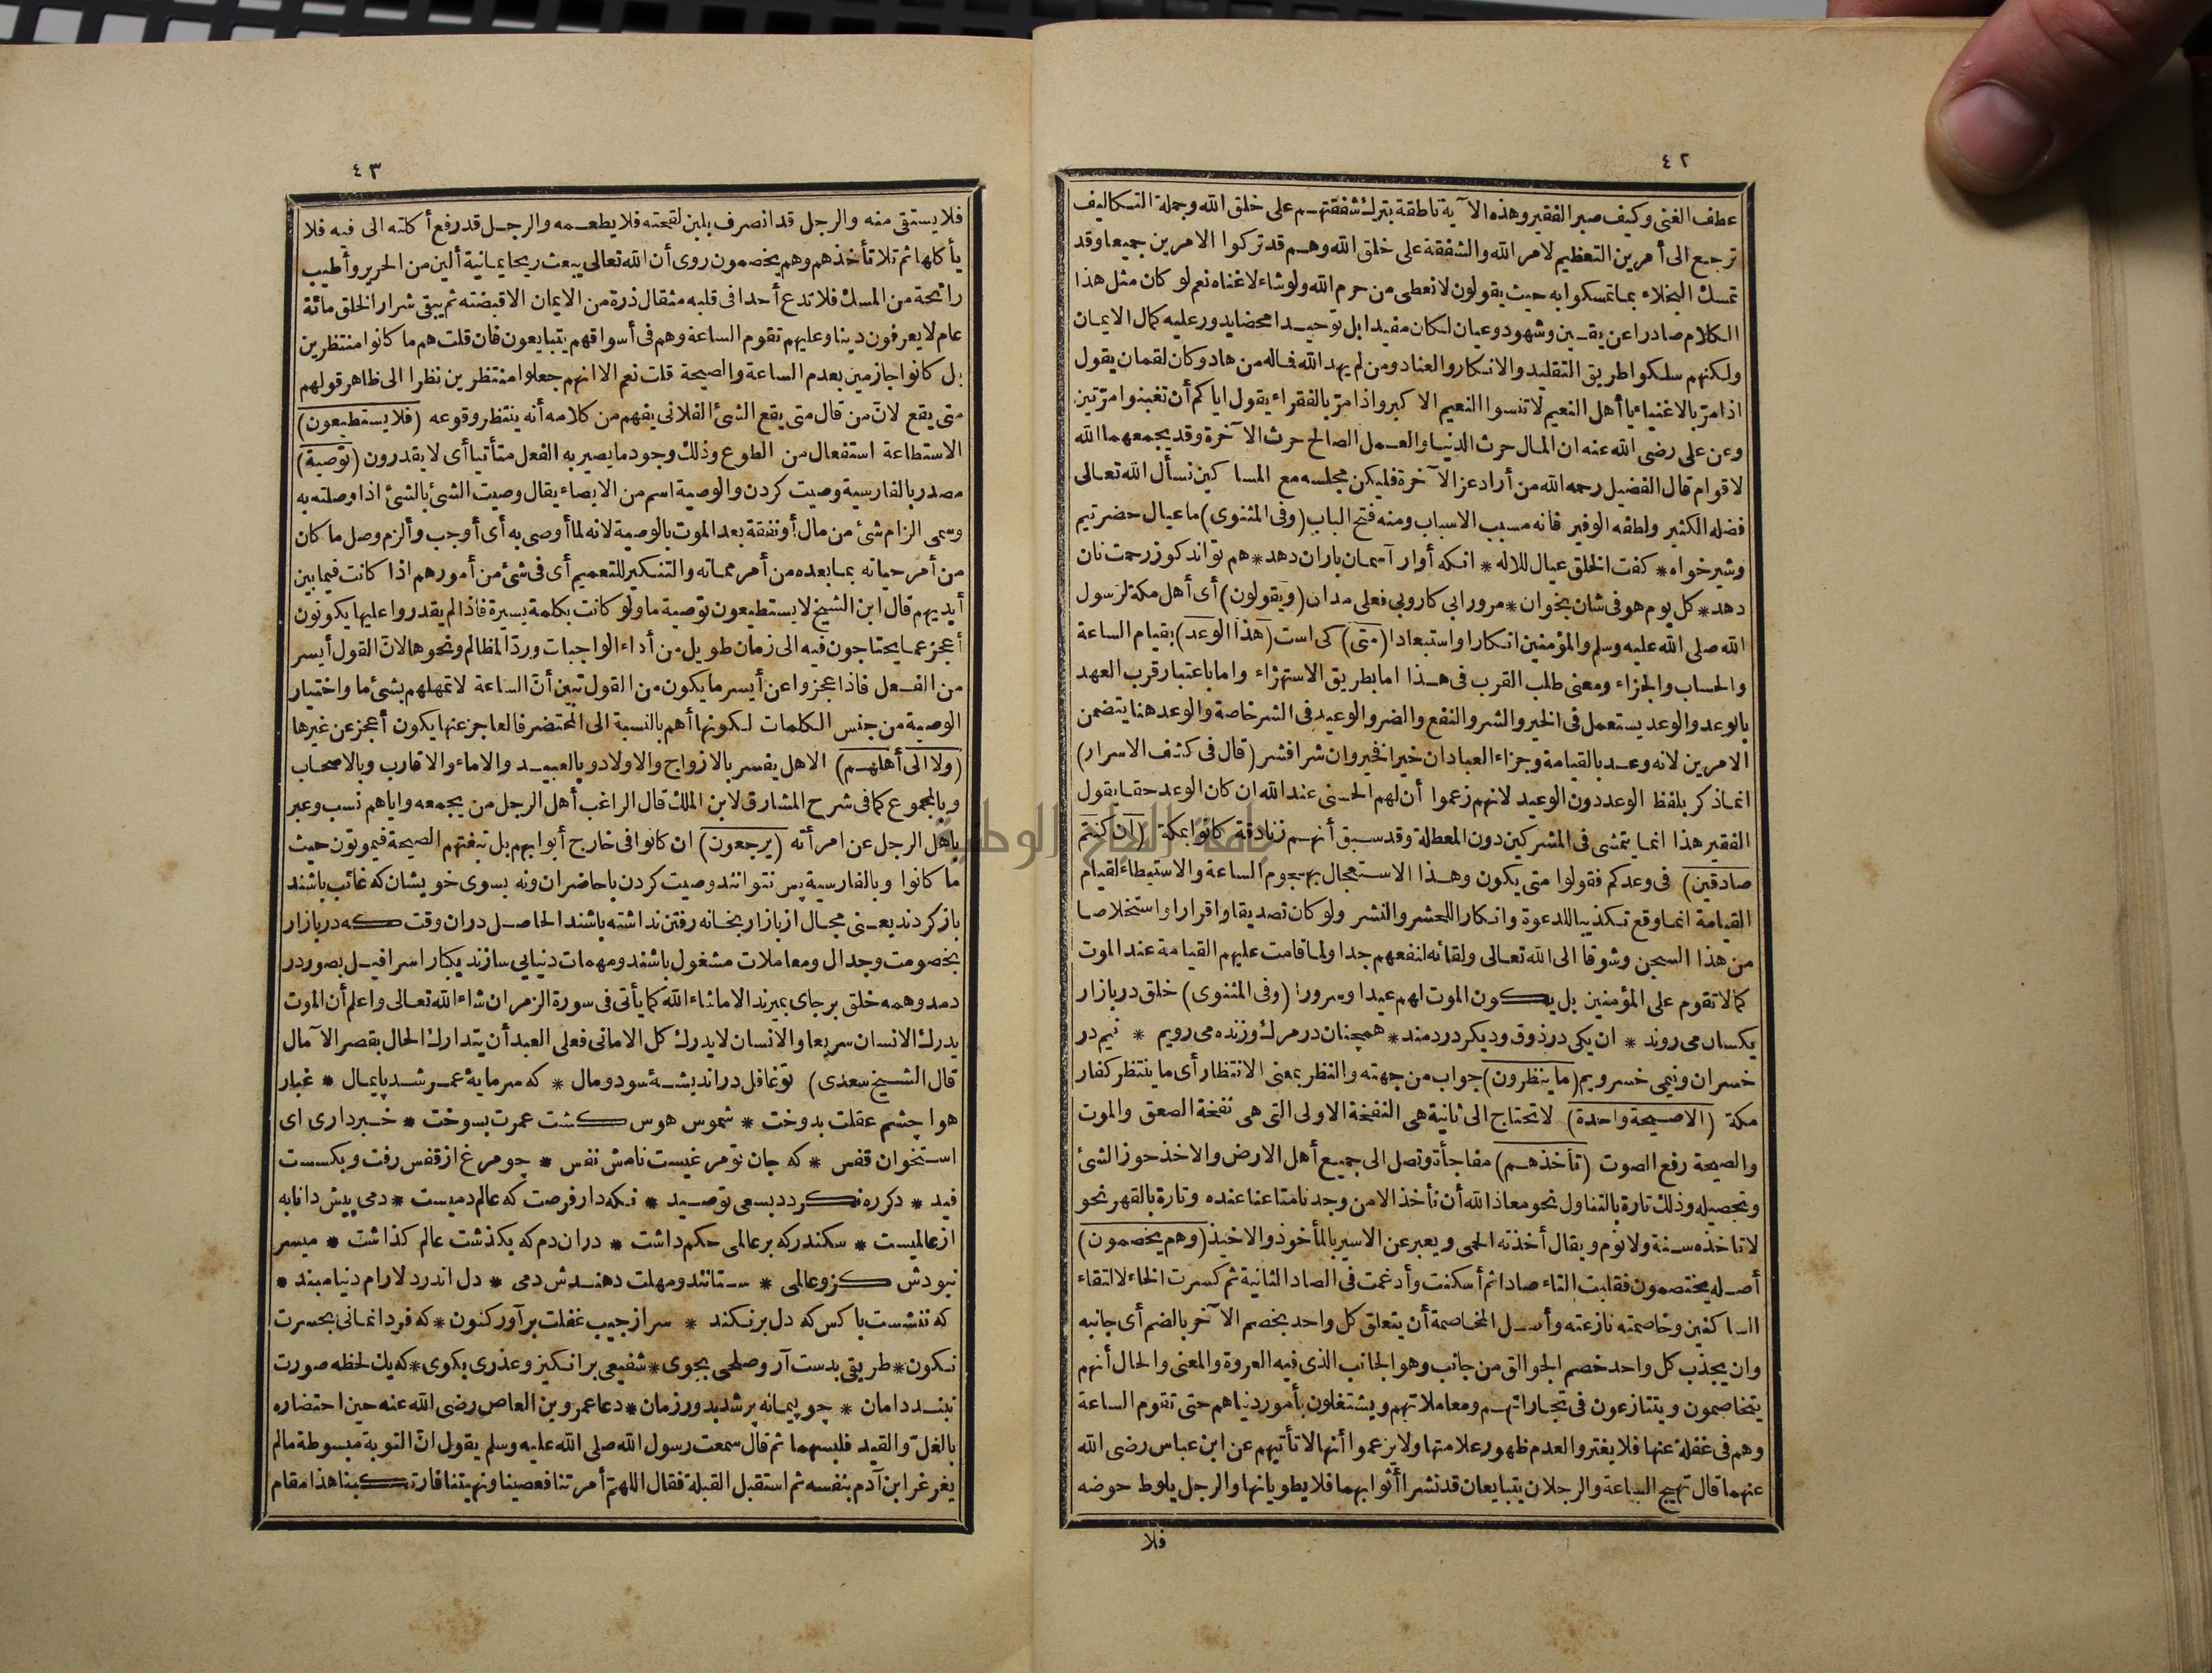 ٤٢
عطف الغنى وكيف صبر الفقير وهذه الآية ناطقة بترك شفقتهم على خلق الله وجملة التكاليف
ترجع الى أمرين التعظيم لامر الله والشفقة على خلق الله وهم قد تركوا الامرين جميعا وقد
تمسك البخلاء بما تمسكوا به حيث يقولون لا نعطى من حرم الله ولو شاء لاغناه نعم لو كان مثل هذا
الكلام صادرا عن يقين وشهود وعيان لكان مفيدا بل توحيدا محضا يدور عليه كمال الايمان
ولكنهم سلكوا طريق التقليد والانكار والعناد ومن لم يهد الله فماله من هاد وكان لقمان يقول
اذا مرّ بالاغنياء يا أهل النعيم لا تنسوا النعيم الا كبر واذا مرّ بالفقراء يقول اياكم أن تغبنوا مرّتين
وعن على رضى الله عنه ان المال حرث الدنيا والعمل الصالح حرث الآخرة وقد يجمعهما الله
لاقوام قال الفضيل رحمه الله من أراد عز الآخرة فليكن مجلسه مع المساكين نسأل الله تعالى
فضله الكثير ولطفه الوفير فانه مسبب الاسباب ومنه فتح الباب (وفى المثنوى) ما عيال حضرتيم
وشير خواه * كفت الخلق عيال للاله * انكه أو از آسمان باران دهد * هم تواند كو ز رحمت نان
دهد * كل يوم هو فى شان بخوان * مرورابى كار وبى فعلى مدان (ويقولون) أى أهل مكة لرسول
الله صلى الله عليه وسلم والمؤمنين انكارا واستبعادا (متى) كى است (هذا الوعد) بقيام الساعة
والحساب والجزاء ومعنى طلب القرب فى هذا اما بطريق الاستهزاء واما باعتبار قرب العهد
بالوعد والوعد يستعمل فى الخير والشر والنفع والضر والوعيد فى الشر خاصة والوعد هنا يتضمن
الامرين لانه وعد بالقيامة وجزاء العباد ان خيرا فخير وان شرا فشر (قال فى كشف الاسرار)
انما ذكر بلفظ الوعد دون الوعيد لانهم زعموا أن لهم الحسنى عند الله ان كان الوعد حقا يقول
الفقير هذا انما يتمشى فى المشركين دون المعطلة وقد سبق أنهم زنادقة كانوا بمكة (ان كنتم
صادقين) فى وعدكم فقولوا متى يكون وهذا الاستعجال بهجوم الساعة والاستبطاء لقيام
القيامة انما وقع تكذيبا للدعوة وانكارا للحشر والنشر ولو كان تصديقا واقرارا واستخلاصا
من هذا السجن وشوقا الى الله تعالى ولقائه لنفعهم جدا ولما قامت عليهم القيامة عند الموت
كما لا تقوم على المؤمنين بل يكون الموت لهم عيدا وسرورا (وفى المثنوى) خلق در بازار
يكسان مى روند * ان يكى در ذوق وديكر دردمند * همچنان در مرك وزنده مى رويم * نيم در
خسران ونيمى خسرويم (ما ينظرون) جواب من جهته والنظر بمعنى الانتظار أى ما ينتظر كفار
مكة (الا صيحة واحدة) لا تحتاج الى ثانية هى النفخة الاولى التى هى نفخة الصعق والموت
والصيحة رفع الصوت (تأخذهم) مفاجأة وتصل الى جميع أهل الارض والاخذ حوز الشئ
وتحصيله وذلك تارة بالتناول نحو معاذ الله أن نأخذ الا من وجدنا متاعنا عنده وتارة بالقهر نحو
لا تاخذه سنة ولا نوم ويقال أخذته الحمى ويعبر عن الاسير بالمأخوذ والاخيذ (وهم يخصمون)
أصله يختصمون فقلبت التاء صادا ثم أسكنت وأدغمت فى الصاد الثانية ثم كسرت الخاء لالتقاء
الساكنين وخاصمته نازعته وأصل المخاصمة أن يتعلق كل واحد بخصم الآخر بالضم أى جانبه
وان يجذب كل واحد خصم الجوالق من جانب وهو الجانب الذى فيه العروة والمعنى والحال أنهم
يتخاصمون ويتنازعون فى تجاراتهم ومعاملاتهم ويشتغلون بأمور دنياهم حتى تقوم الساعة
وهم فى غفلة عنها فلا يغتروا لعدم ظهور علامتها ولا يزعموا أنها لا تأتيهم عن ابن عباس رضى الله
عنهما قال تهيج الساعة والرجلان يتبايعان قد نشرا أثوابهما فلا يطويانها والرجل يلوط حوضه
فلا
٤٣
فلا يستقى منه والرجل قد انصرف بلبن لقحته فلا يطعمه والرجل قد رفع أكلته الى فيه فلا
يأكلها ثم تلا تأخذهم وهم يخصمون روى أن الله تعالى يبعث ريحا يمانية ألين من الحرير وأطيب
رائحة من المسك فلا تدع أحدا فى قلبه مثقال ذرة من الايمان الا قبضته ثم يبقى شرار الخلق مائة
عام لا يعرفون دينا وعليهم تقوم الساعة وهم فى أسواقهم يتبايعون فان قلت هم ما كانوا منتظرين
بل كانوا جازمين بعدم الساعة والصيحة قلت نعم الا انهم جعلوا منتظرين نظرا الى ظاهر قولهم
متى يقع لانّ من قال متى يقع الشئ الفلانى يفهم من كلامه أنه ينتظر وقوعه (فلا يستطيعون)
الاستطاعة استفعال من الطوع وذلك وجود ما يصير به الفعل متأتيا أى لا يقدرون (توصية)
مصدر بالفارسية وصيت كردن والوصية اسم من الايصاء يقال وصيت الشئ بالشئ اذا وصلته به
وسمى الزام شئ من مال أو نفقة بعد الموت بالوصية لانه لما أوصى به أى أوجب وألزم وصل ما كان
من أمر حياته بما بعده من أمر مماته والتنكير للتعميم أى فى شئ من أمورهم اذا كانت فيما بين
أيديهم قال ابن الشيخ لا يستطيعون توصية ما ولو كانت بكلمة يسيرة فاذا لم يقدروا عليها يكونون
أعجز عما يحتاجون فيه الى زمان طويل من أداء الواجبات وردّ المظالم ونحوها لانّ القول أيسر
من الفعل فاذا عجزوا عن أيسر ما يكون من القول تبين أنّ الساعة لا تمهلهم بشئ ما واختيار
الوصية من جنس الكلمات لكونها أهم بالنسبة الى المحتضر فالعاجز عنها يكون أعجز عن غيرها
(ولا الى أهلهم) الاهل يفسر بالازواج والاولاد وبالعبيد والاماء والاقارب وبالاصحاب
وبالمجموع كما فى شرح المشارق لابن الملك قال الراغب أهل الرجل من يجمعه واياهم نسب وعبر
باهل الرجل عن امرأته (يرجعون) ان كانوا فى خارج أبوابهم بل تبغتهم الصيحة فيموتون حيث
ما كانوا وبالفارسية پس نتوانند وصيت كردن با حاضران ونه بسوى خويشان كه غائب باشند
باز كردند يعنى مجال از بازار بخانه رفتن نداشته باشند الحاصل دران وقت كه در بازار
بخصومت وجدال ومعاملات مشغول باشند ومهمات دنيايى سازند يكبار اسرافيل بصور در
دمد وهمه خلق بر جاى بميرند الا ما شاء الله كما يأتى فى سورة الزمر ان شاء الله تعالى واعلم أن الموت
يدرك الانسان سريعا والانسان لا يدرك كل الامانى فعلى العبد أن يتدارك الحال بقصر الآمال
(قال الشيخ سعدى) تو غافل در انديشهٔ سود ومال * كه سرمايهٔ عمر شد پايمال * غبار
هوا چشم عقلت بدوخت * شموس هوس كشت عمرت بسوخت * خبر دارى اى
استخوان قفس * كه جان تو مرغيست نامش نفس * چو مرغ از قفس رفت وبكسست
قيد * دكر ره نكردد بسعى تو صيد * نكه دار فرصت كه عالم دميست * دمى پيش دانا به
از عالميست * سكندر كه بر عالمى حكم داشت * دران دم كه بكذشت عالم كذاشت * ميسر
نبودش كزو عالمى * ستانند ومهلت دهندش دمى * دل اندر دلارام دنيا مبند *
كه ننشست با كس كه دل بر نكند * سر از جيب غفلت برآور كنون * كه فردا نمانى بحسرت
نكون * طريقى بدست آر وصلحى بجوى * شفيعى برانكيز وعذرى بكوى * كه يك لحظه صورت
نبندد امان * چو پيمانه پر شد بدور زمان * دعا عمرو بن العاص رضى الله عنه حين احتضاره
بالغلّ والقيد فلبسهما ثم قال سمعت رسول الله صلى الله عليه وسلم يقول انّ التوبة مبسوطة مالم
يغرغر ابن آدم بنفسه ثم استقبل القبلة فقال اللهمّ أمرتنا فعصينا ونهيتنا فارتكبنا هذا مقام